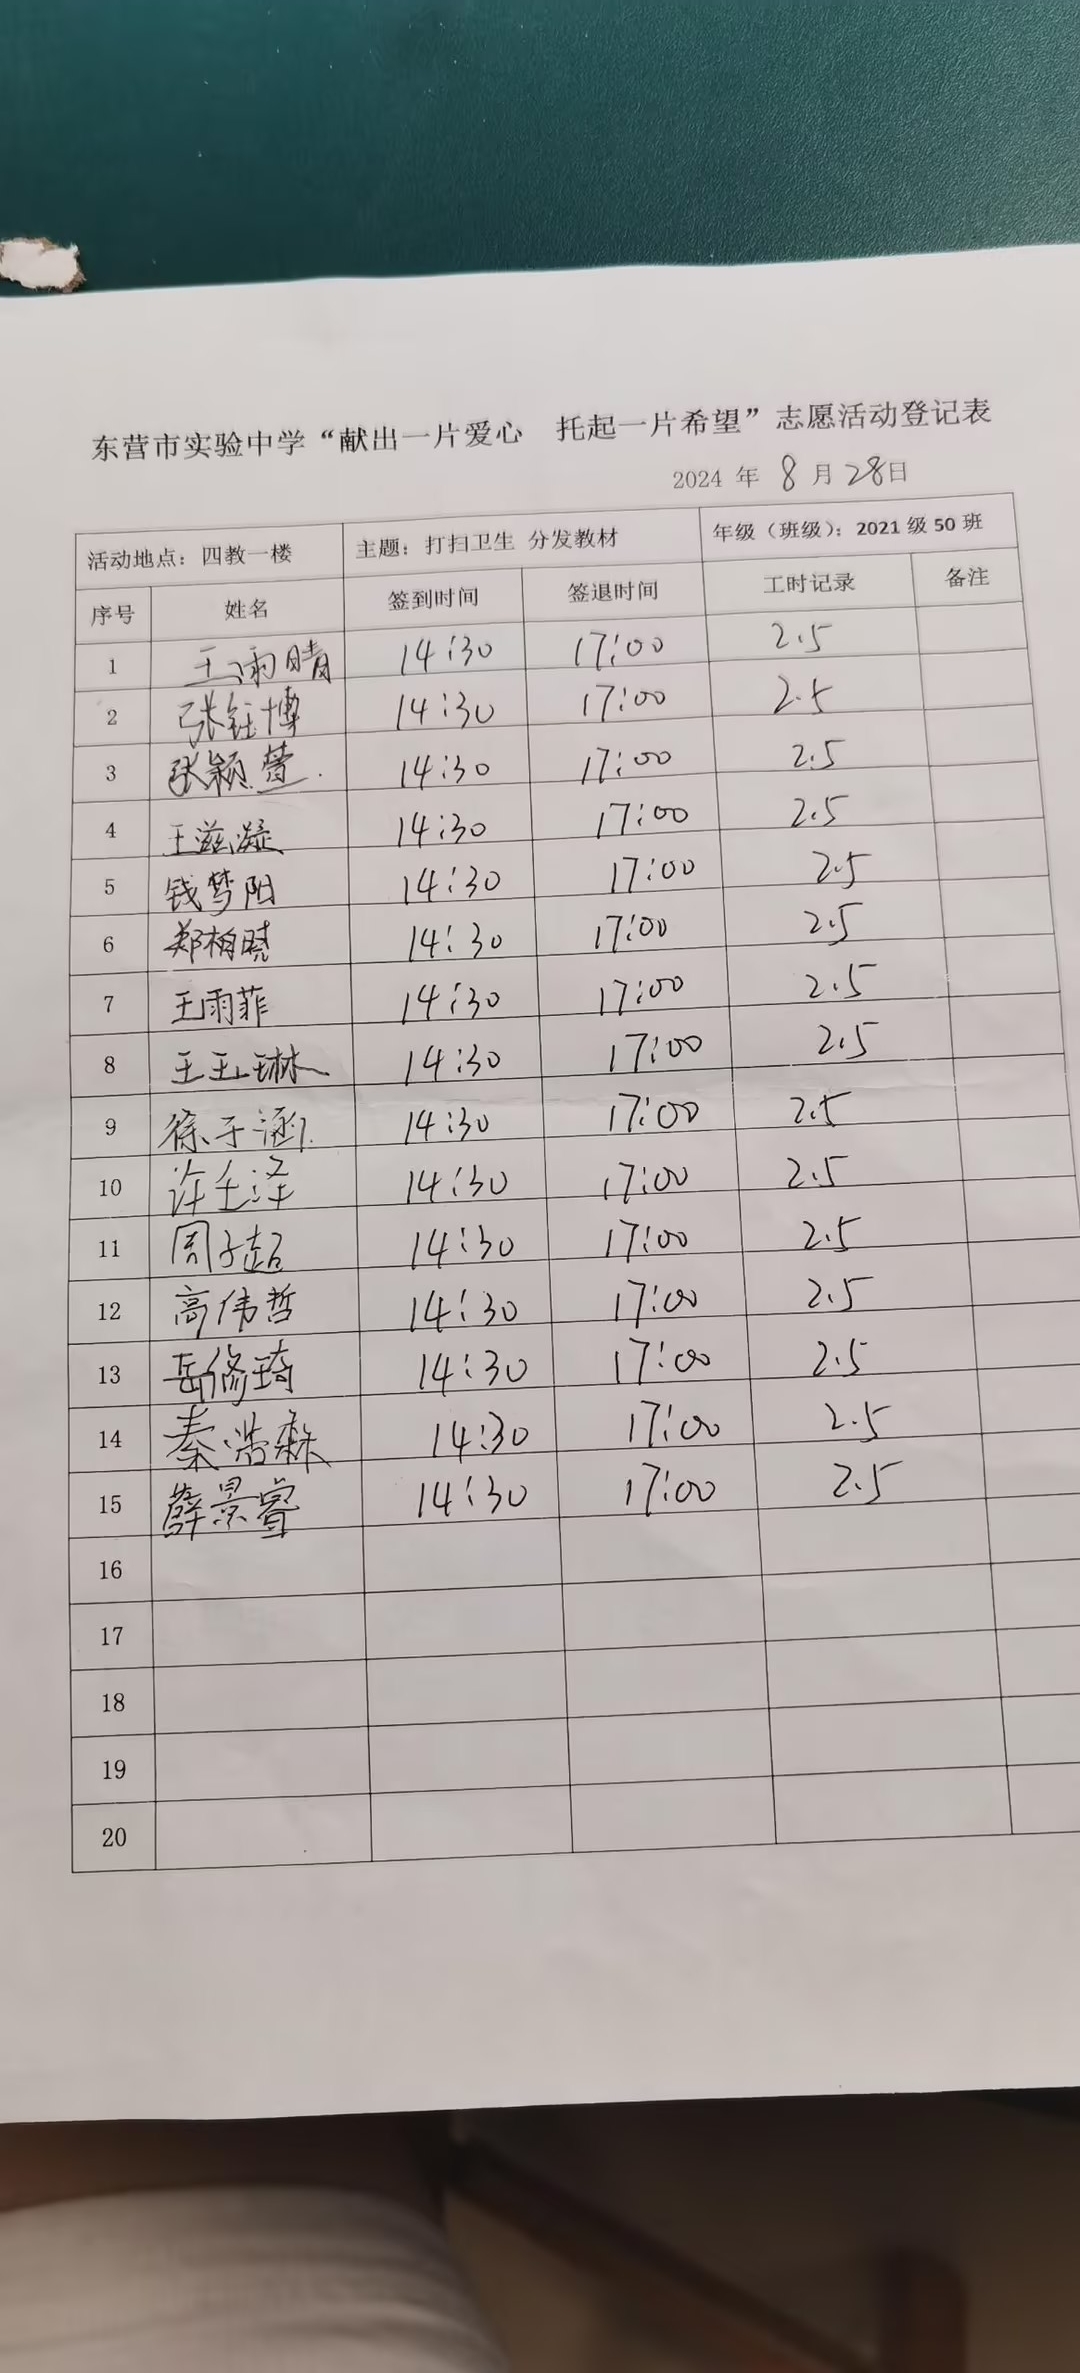 东营市实验中学“献出一片爱心 托起一片希望”志愿活动登记表
2024 年 8 月 28 日
活动地点：四教一楼 主题：打扫卫生 分发教材 年级（班级）：2021 级 50 班
序号 姓名 签到时间 签退时间 工时记录 备注
1 王雨晴 14:30 17:00 2.5
2 张钰博 14:30 17:00 2.5
3 张颖萱 14:30 17:00 2.5
4 王滋凝 14:30 17:00 2.5
5 钱梦阳 14:30 17:00 2.5
6 郑相晓 14:30 17:00 2.5
7 王雨菲 14:30 17:00 2.5
8 王玉琳 14:30 17:00 2.5
9 徐子涵 14:30 17:00 2.5
10 许壬泽 14:30 17:00 2.5
11 周子超 14:30 17:00 2.5
12 高伟哲 14:30 17:00 2.5
13 岳修琦 14:30 17:00 2.5
14 秦浩森 14:30 17:00 2.5
15 薛景睿 14:30 17:00 2.5
16
17
18
19
20